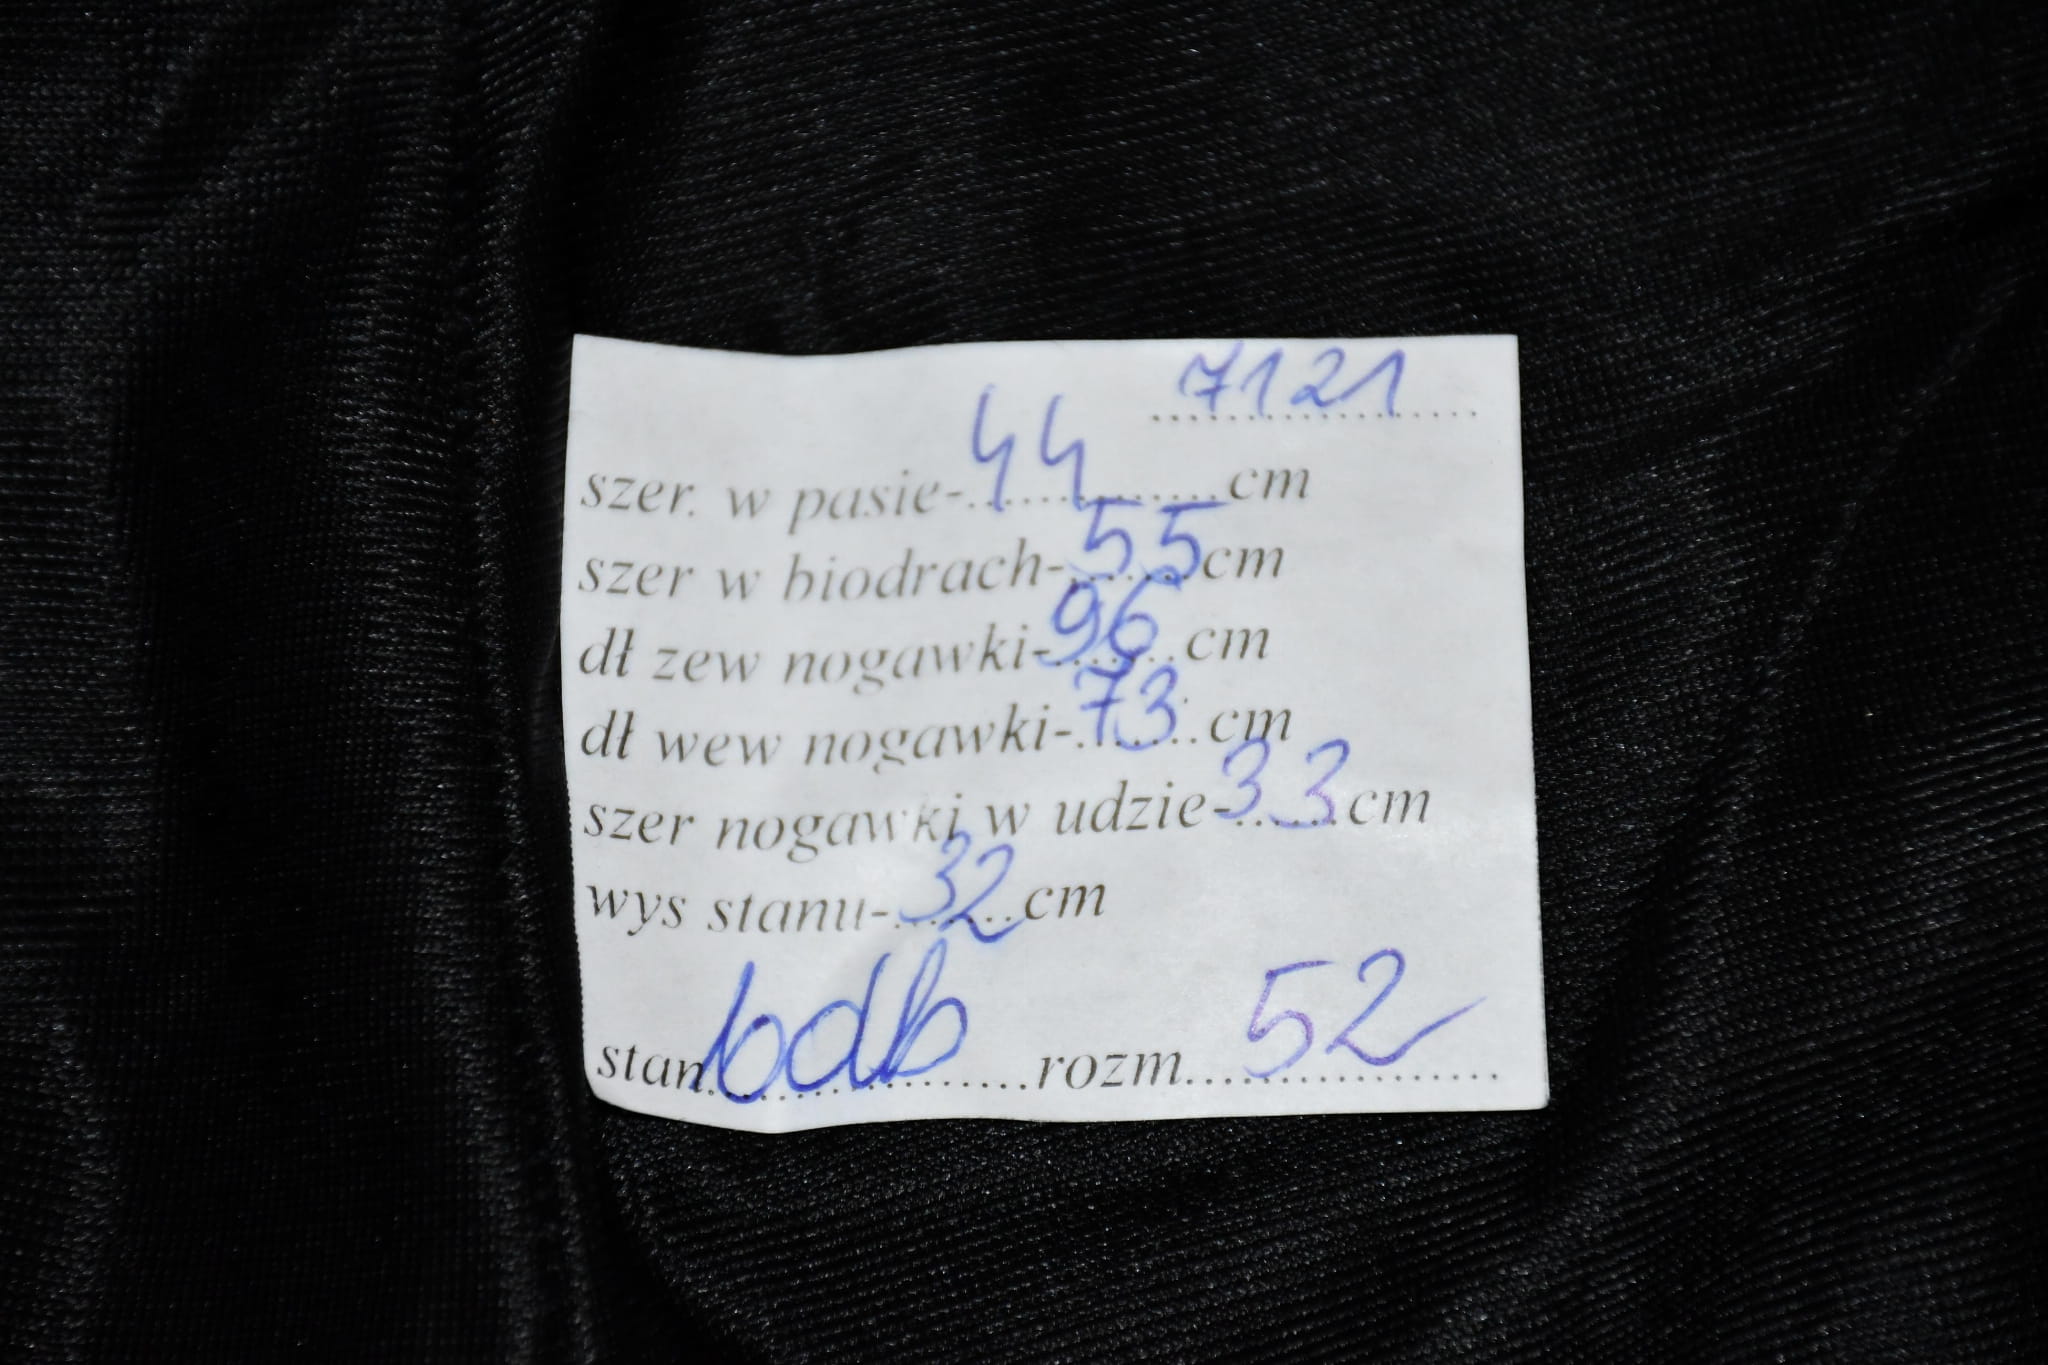 7121
szer. w pasie-44cm
szer w biodrach-55cm
dł zew nogawki-96cm
dł wew nogawki-73cm
szer nogawki w udzie-33cm
wys stanu-32cm
stan bdb rozm 52